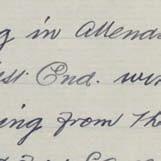 g in Attend
st End. wi
ing from Th